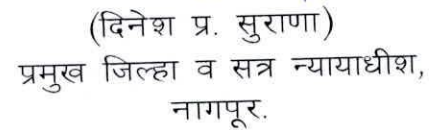 (दिनेश प्र. सुराणा)
प्रमुख जिल्हा व सत्र न्यायाधीश,
नागपूर.